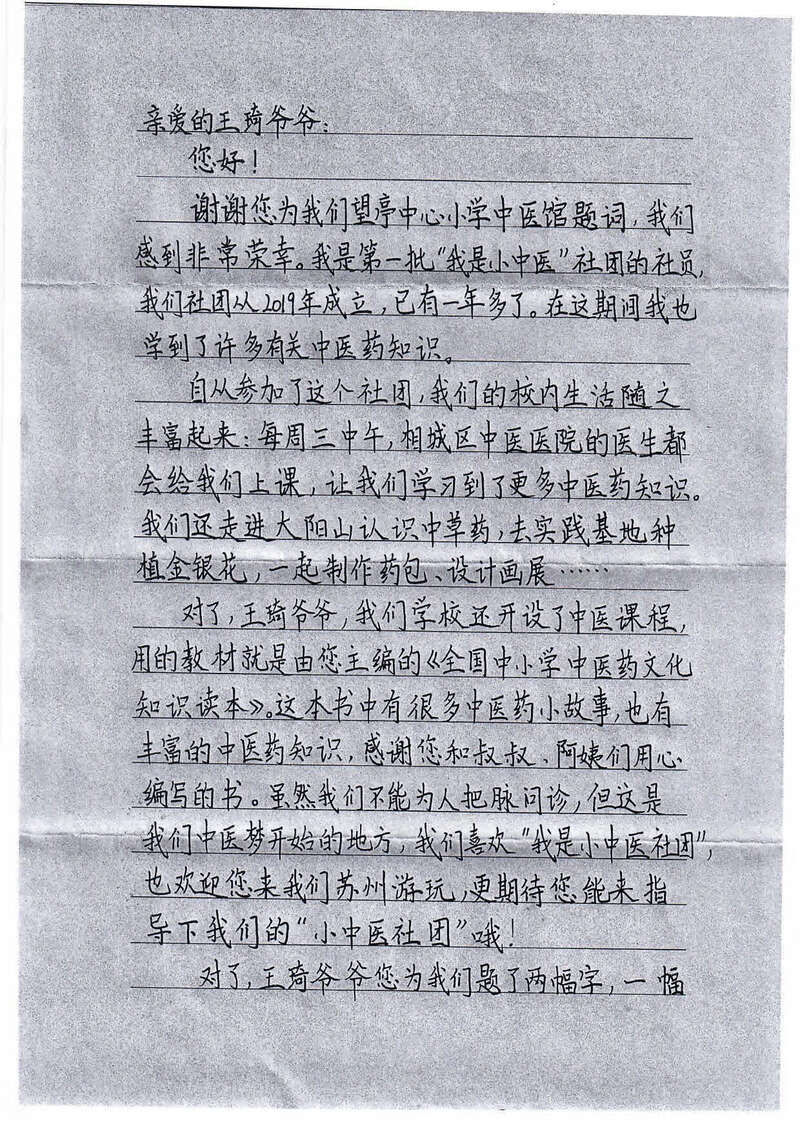 亲爱的王琦爷爷：
您好！
谢谢您为我们望亭中心小学中医馆题词，我们
感到非常荣幸。我是第一批“我是小中医”社团的社员，
我们社团从2019年成立，已有一年多了。在这期间我也
学到了许多有关中医药知识。
自从参加了这个社团，我们的校内生活随之
丰富起来：每周三中午，相城区中医医院的医生都
会给我们上课，让我们学习到了更多中医药知识。
我们还走进大阳山认识中草药，去实践基地种
植金银花，一起制作药包、设计画展……
对了，王琦爷爷，我们学校还开设了中医课程，
用的教材就是由您主编的《全国中小学中医药文化
知识读本》。这本书中有很多中医药小故事，也有
丰富的中医药知识，感谢您和叔叔、阿姨们用心
编写的书。虽然我们不能为人把脉问诊，但这是
我们中医梦开始的地方，我们喜欢“我是小中医社团”，
也欢迎您来我们苏州游玩，更期待您能来指
导下我们的“小中医社团”哦！
对了，王琦爷爷您为我们题了两幅字，一幅